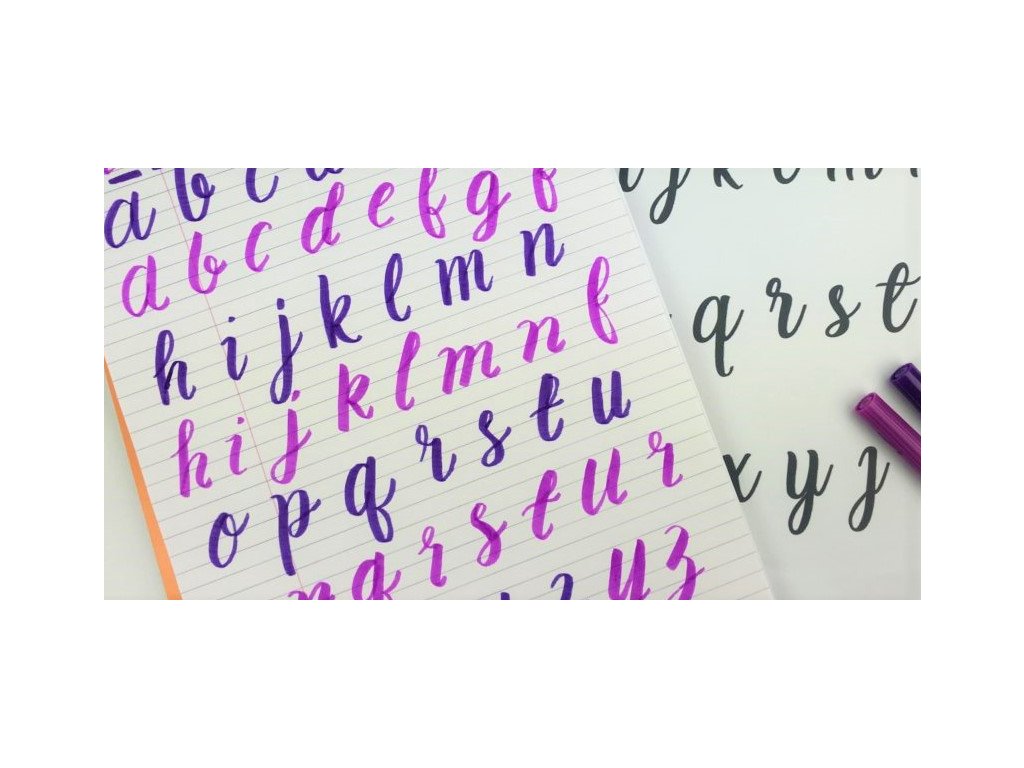 a b c
a b c d e f g f
h i j k l m n
h i j k l m n f
o p q r s t u
p q r s t u r
z y z
j k l m
q r s t
x y z